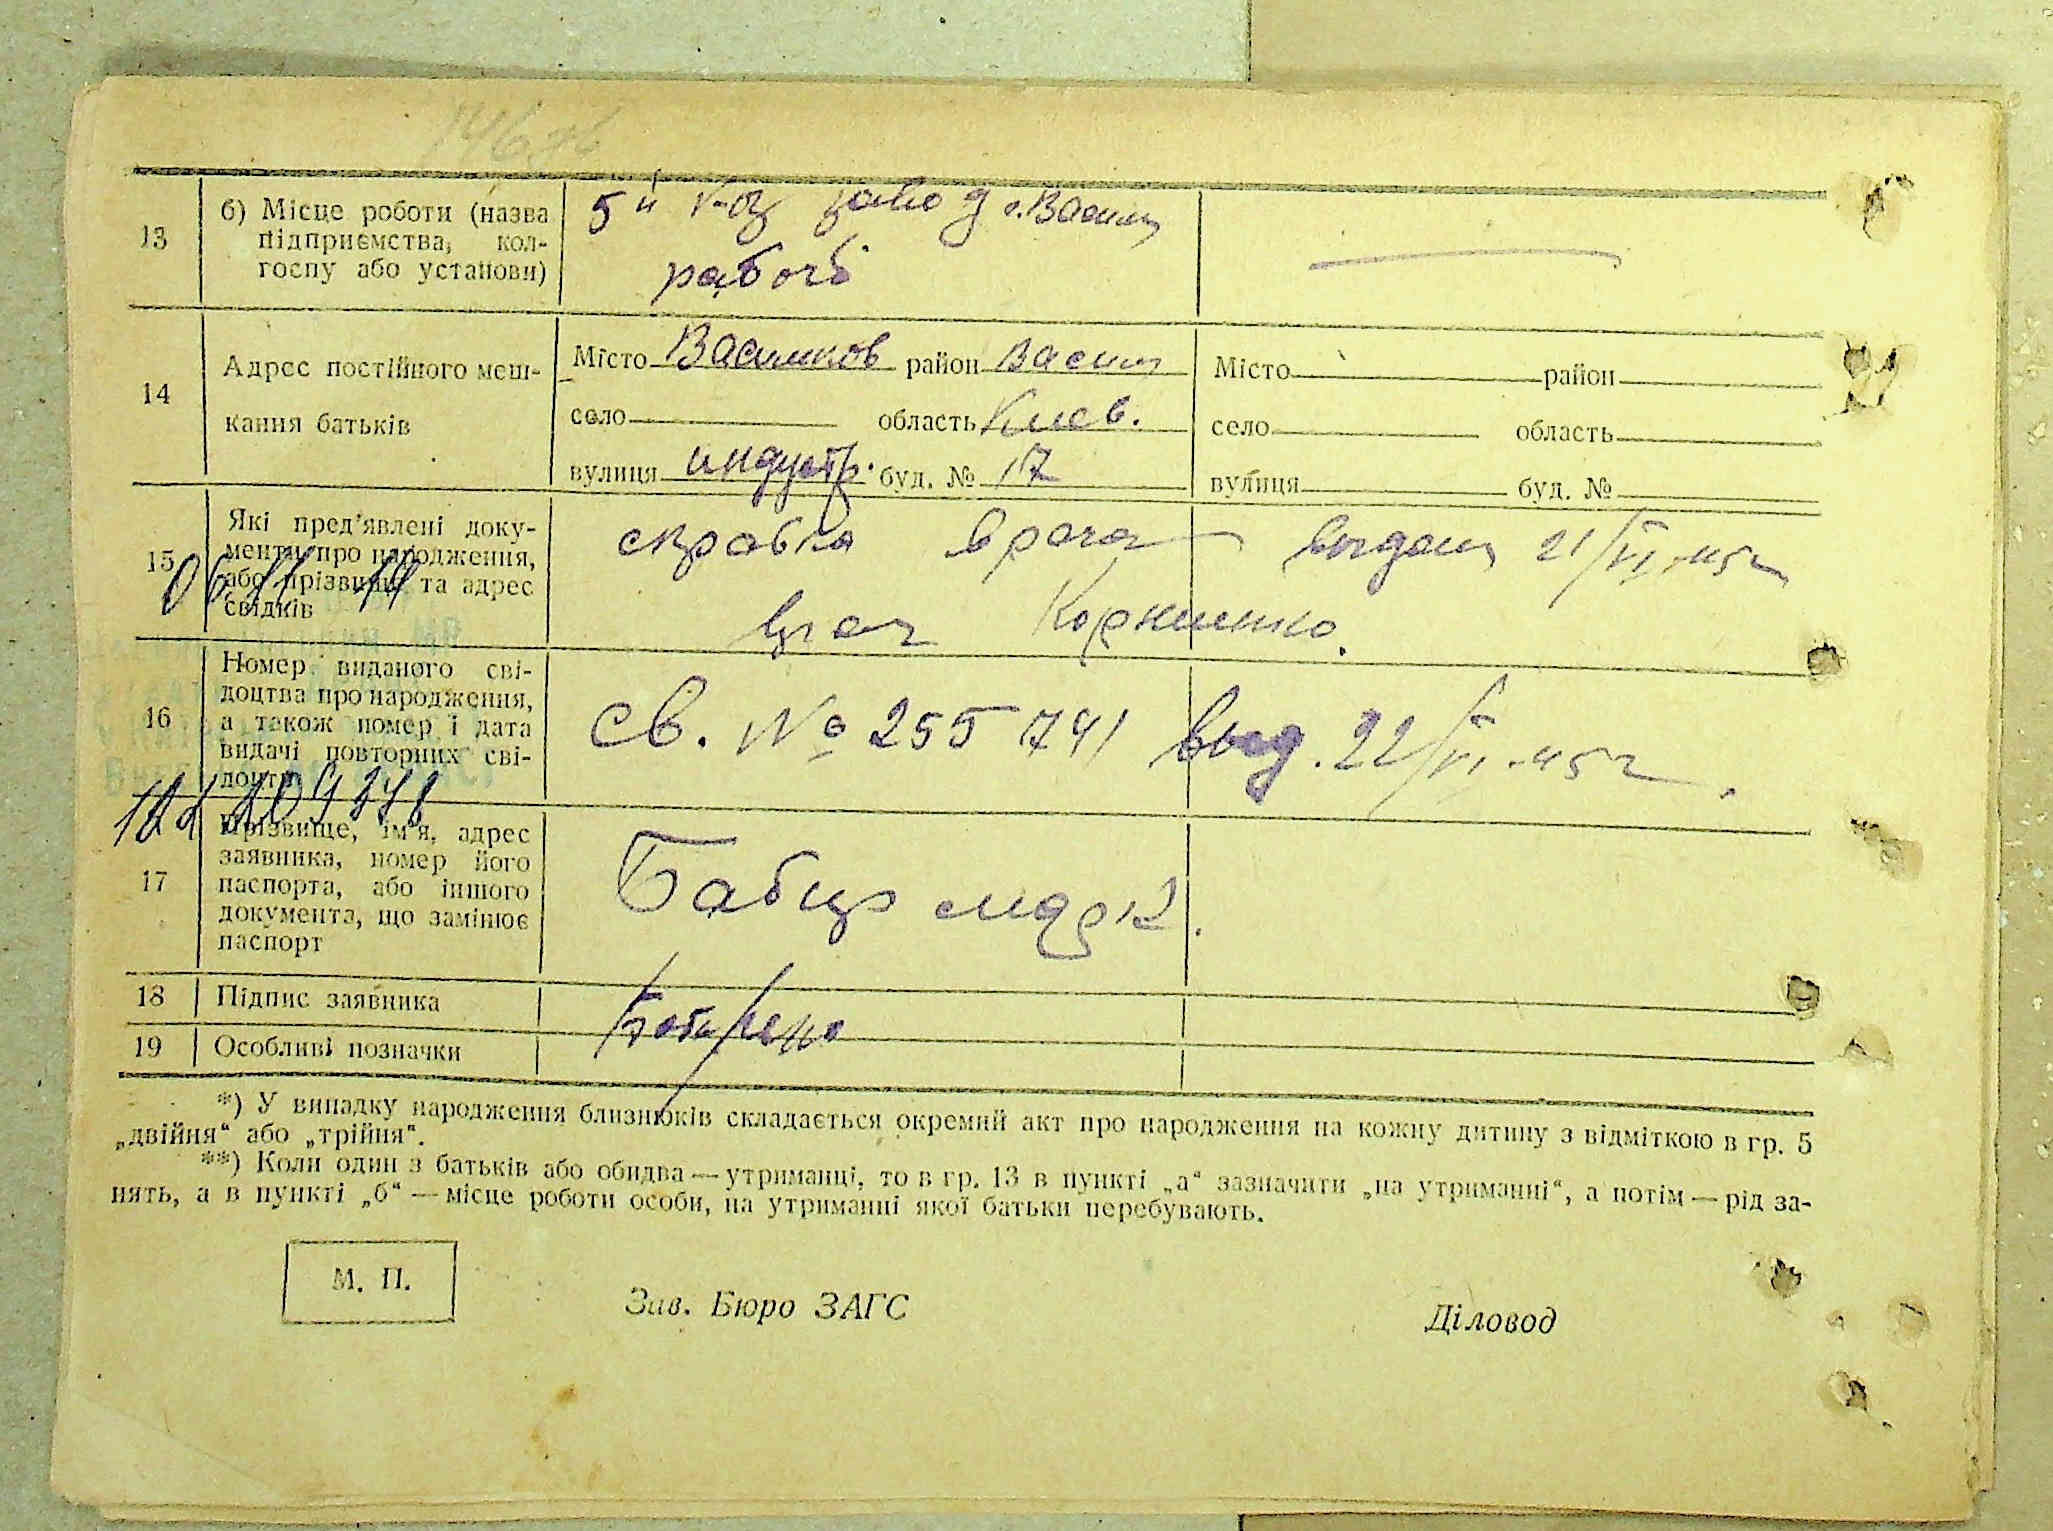 13
б) Місце роботи (назва
підприємства, кол-
госпу або установи)
5й к-оз завод г. Василь
рабочй
14
Адрес постійного меш-
кання батьків
Місто Васильков район Василь
село область Киев.
вулиця индустр. буд. № 17
Місто район
село область
вулиця буд. №
15
Які пред'явлені доку-
менти про народження,
або прізвище та адрес
свідків
справка врача выдан 21/VI-45г
врач Корниенко.
16
Номер виданого сві-
доцтва про народження,
а також номер і дата
видачі повторних сві-
доцтв
св. № 255741 выд. 22/VI-45г.
17
Прізвище, ім'я, адрес
заявника, номер його
паспорта, або іншого
документа, що замінює
паспорт
18
Підпис заявника
19
Особливі позначки
*) У випадку народження близнюків складається окремий акт про народження на кожну дитину з відміткою в гр. 5
„двійня“ або „трійня“.
**) Коли один з батьків або обидва — утриманці, то в гр. 13 в пункті „а“ зазначити „на утриманні“, а потім — рід за-
нять, а в пункті „б“ — місце роботи особи, на утриманні якої батьки перебувають.
М. П.
Зав. Бюро ЗАГС
Діловод